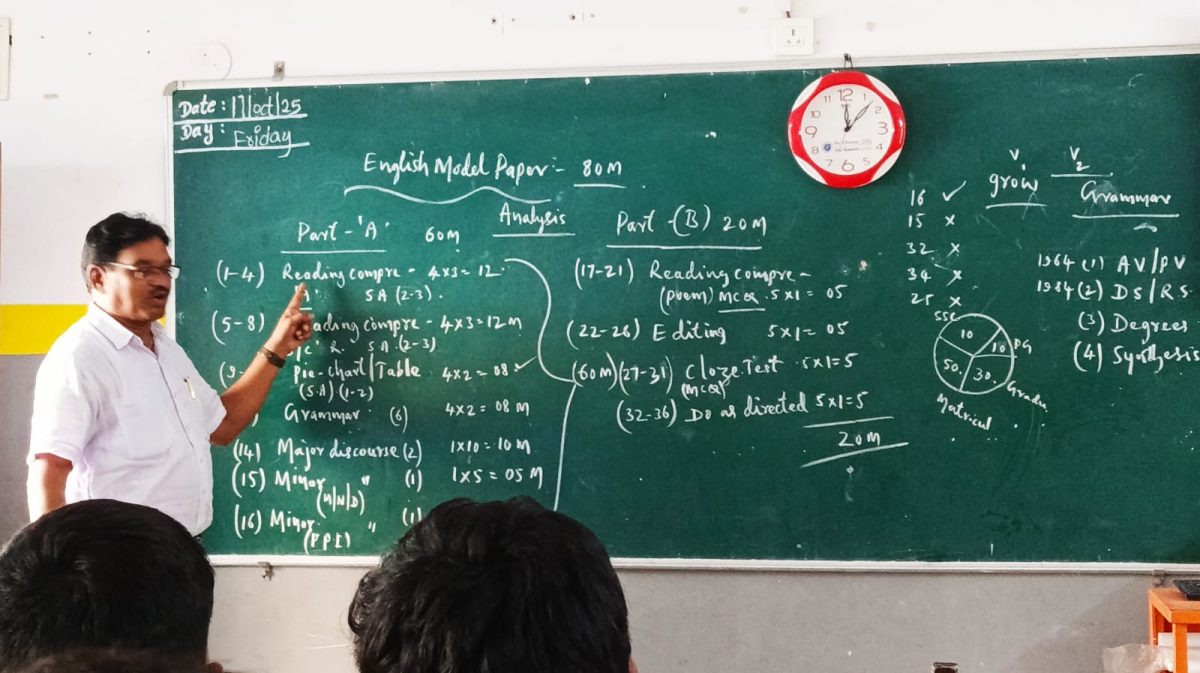 Date: 17/oct/25
Day: Friday
English Model Paper:- 80M
Analysis
Part - 'A' 60M
(1-4) Reading compre - 4x3=12
'A' SA (2-3).
(5-8) ading compre - 4x3=12M
2. SA (2-3)
(9- Pie-chart/Table 4x2=08 ✓
(S.A) (1-2)
) Grammar (6) 4x2=08 M
(14) Major discourse (2) 1x10=10M
(15) Minor " (1) 1x5=05M
(N/N/D)
(16) Minor " (1
(P.P.I)
Part -(B) 20M
(17-21) Reading compre-
(poem) MCQ .5x1= 05
(22-26) Editing 5x1= 05
(60m)(27-31) Cloze Test .5x1=5
(MCQ)
(32-36) Do as directed 5x1=5
20M
12
1
2
3
4
5
6
7
8
9
10
11
16 ✓
15 x
32 x
34 x
25 x
SSC
10
10 PG
50.
30.
Gradu
Matricul
V1 V2
grow Grammar
1964 (1) AV/PV
1984 (2) DS/RS
(3) Degrees
(4) Synthesis